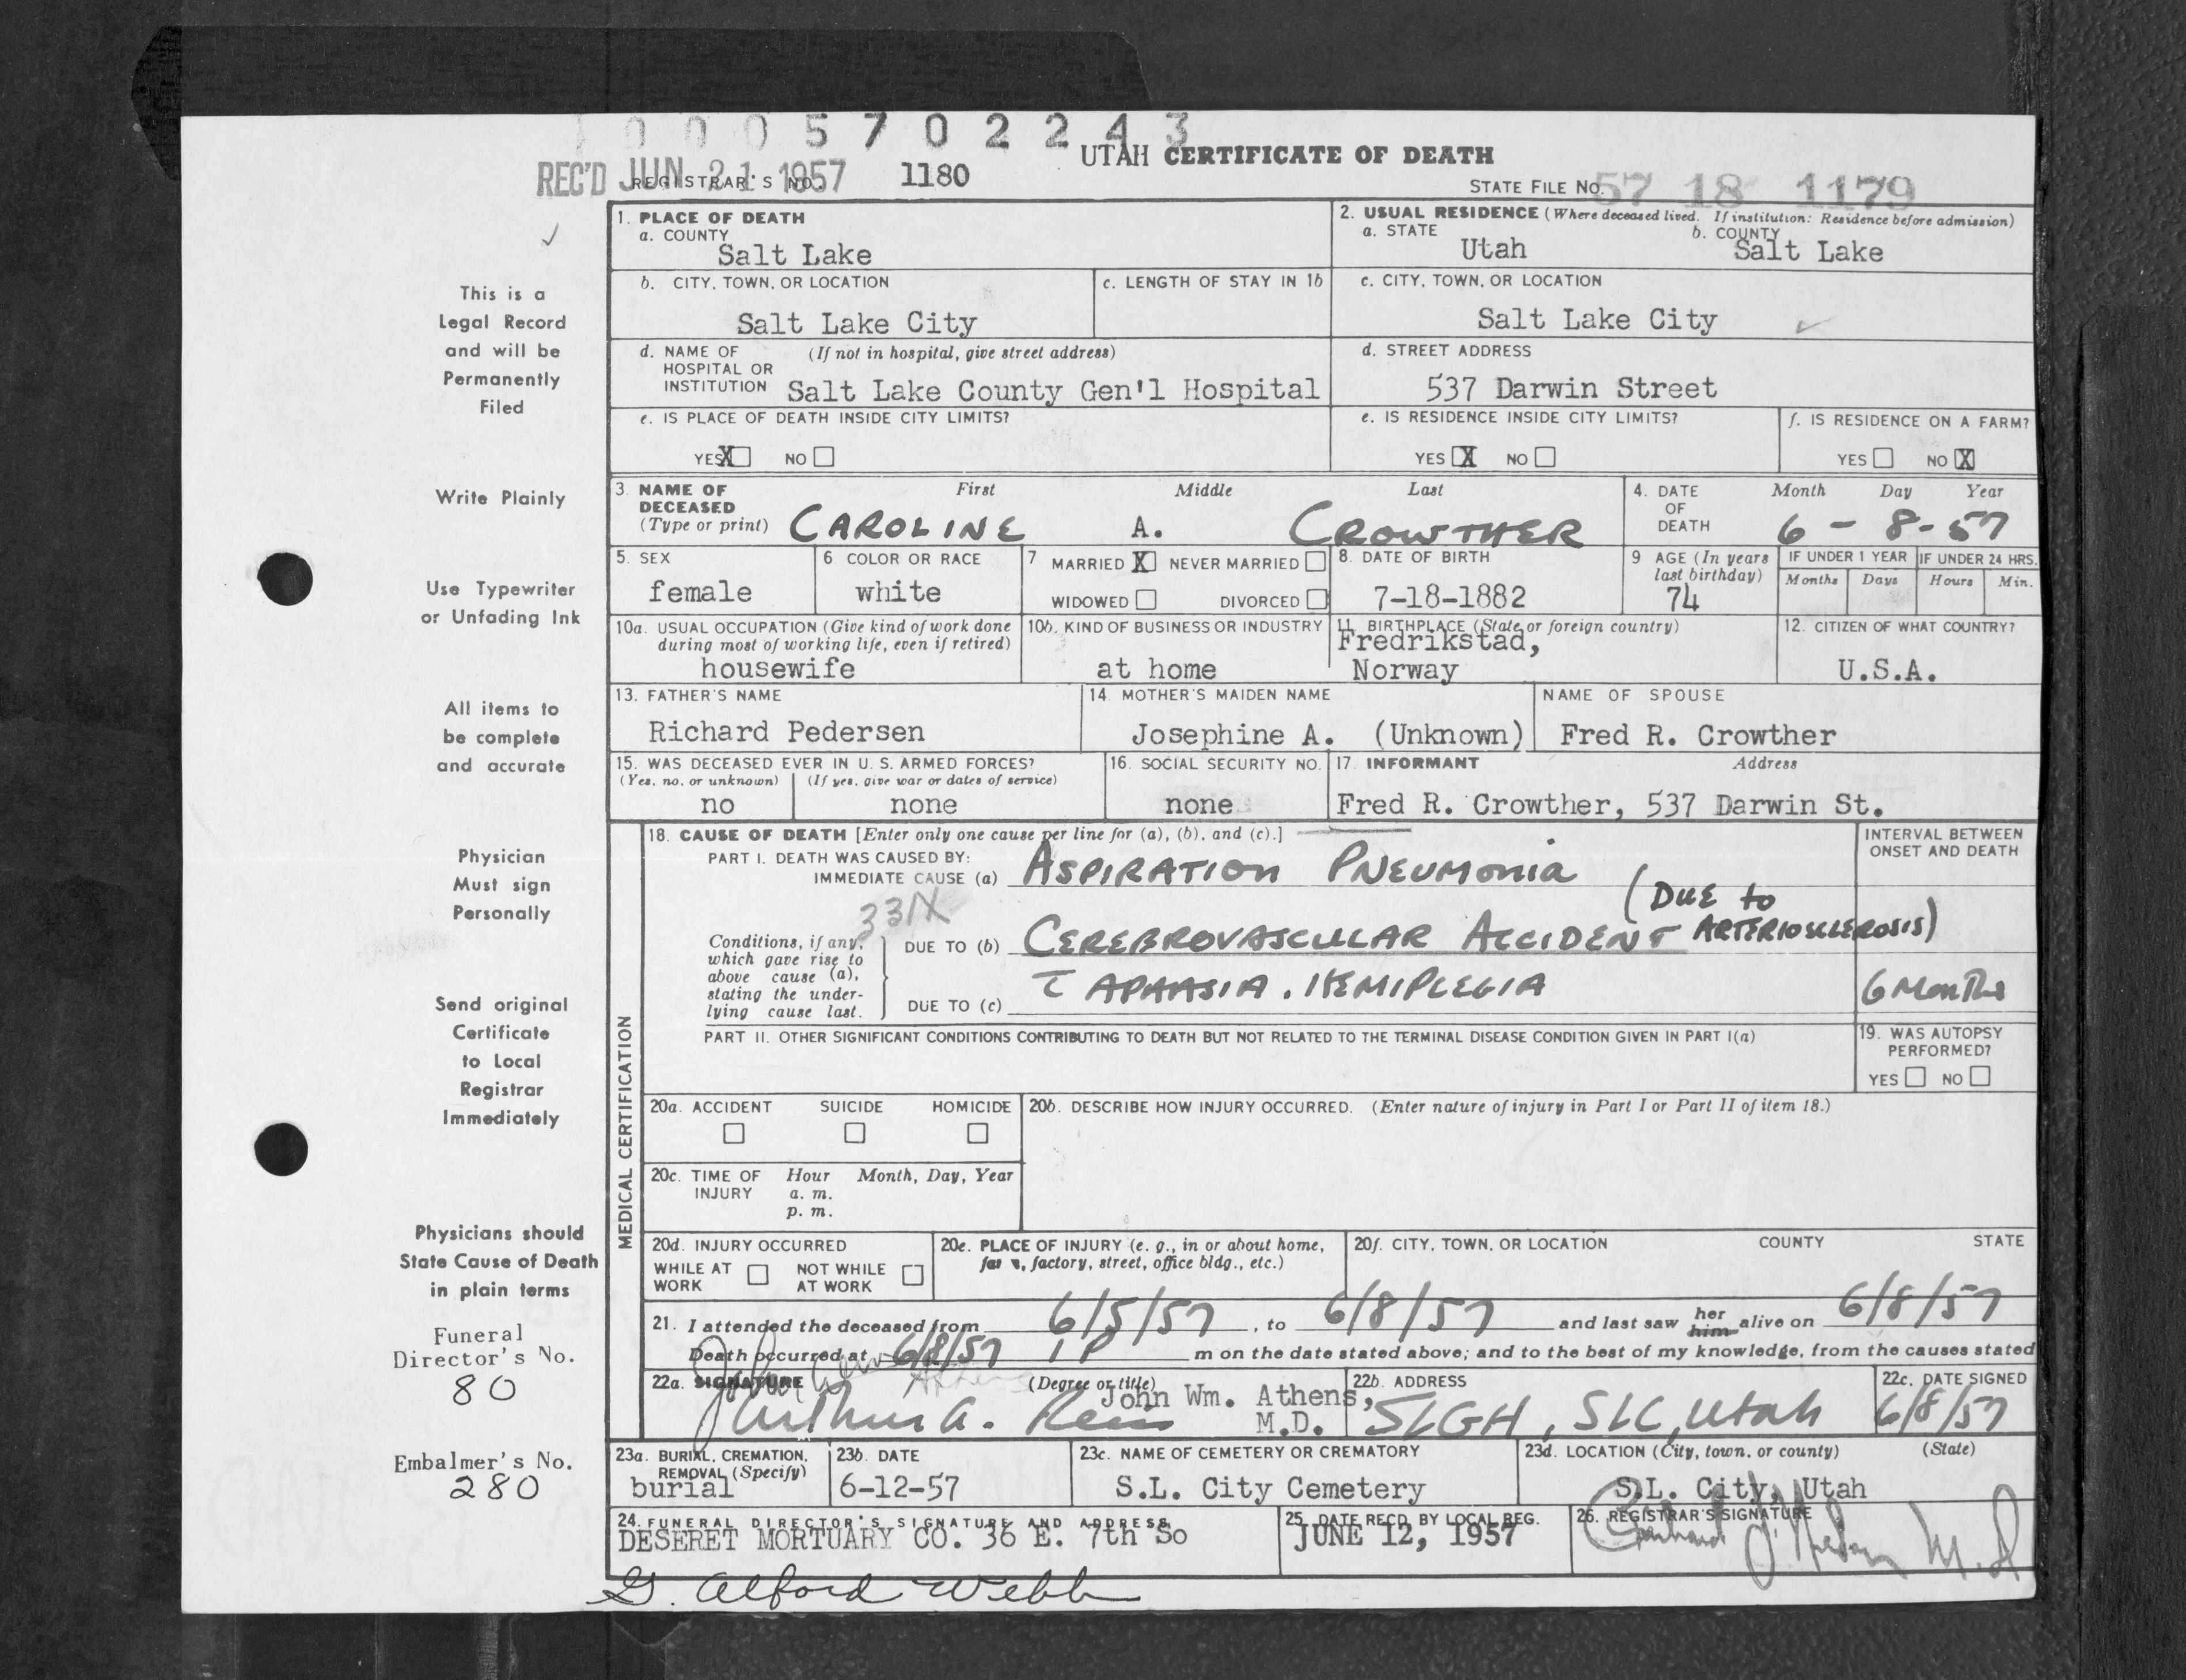 1 0 0 0 5 7 0 2 2 4 3
UTAH CERTIFICATE OF DEATH
REC'D JUN 21 1957
REGISTRAR'S NO. 1180
STATE FILE NO. 57 18 1179
1. PLACE OF DEATH
a. COUNTY
Salt Lake
2. USUAL RESIDENCE (Where deceased lived. If institution: Residence before admission)
a. STATE b. COUNTY
Utah Salt Lake
b. CITY, TOWN, OR LOCATION
Salt Lake City
c. LENGTH OF STAY IN 1b
c. CITY, TOWN, OR LOCATION
Salt Lake City
d. NAME OF (If not in hospital, give street address)
HOSPITAL OR
INSTITUTION Salt Lake County Gen'l Hospital
d. STREET ADDRESS
537 Darwin Street
e. IS PLACE OF DEATH INSIDE CITY LIMITS?
YES X NO
e. IS RESIDENCE INSIDE CITY LIMITS?
YES X NO
f. IS RESIDENCE ON A FARM?
YES NO X
3. NAME OF First Middle Last
DECEASED
(Type or print) CAROLINE A. CROWTHER
4. DATE Month Day Year
OF
DEATH 6 - 8 - 57
5. SEX
female
6 COLOR OR RACE
white
7 MARRIED X NEVER MARRIED
WIDOWED DIVORCED
8. DATE OF BIRTH
7-18-1882
9 AGE (In years
last birthday)
74
IF UNDER 1 YEAR
Months Days
IF UNDER 24 HRS.
Hours Min.
10a. USUAL OCCUPATION (Give kind of work done
during most of working life, even if retired)
housewife
10b. KIND OF BUSINESS OR INDUSTRY
at home
11. BIRTHPLACE (State or foreign country)
Fredrikstad,
Norway
12. CITIZEN OF WHAT COUNTRY?
U.S.A.
13. FATHER'S NAME
Richard Pedersen
14. MOTHER'S MAIDEN NAME
Josephine A. (Unknown)
NAME OF SPOUSE
Fred R. Crowther
15. WAS DECEASED EVER IN U. S. ARMED FORCES?
(Yes, no, or unknown) (If yes, give war or dates of service)
no none
16. SOCIAL SECURITY NO.
none
17. INFORMANT Address
Fred R. Crowther, 537 Darwin St.
MEDICAL CERTIFICATION
18. CAUSE OF DEATH [Enter only one cause per line for (a), (b), and (c).]
INTERVAL BETWEEN
ONSET AND DEATH
PART I. DEATH WAS CAUSED BY:
IMMEDIATE CAUSE (a) ASPIRATION PNEUMONIA
331X
(DUE to
ARTERIOSCLEROSIS)
Conditions, if any,
which gave rise to
above cause (a),
stating the under-
lying cause last.
DUE TO (b) CEREBROVASCULAR ACCIDENT
c̄ APHASIA, HEMIPLEGIA
6 Months
DUE TO (c)
PART II. OTHER SIGNIFICANT CONDITIONS CONTRIBUTING TO DEATH BUT NOT RELATED TO THE TERMINAL DISEASE CONDITION GIVEN IN PART I(a)
19. WAS AUTOPSY
PERFORMED?
YES NO
20a. ACCIDENT SUICIDE HOMICIDE
20b. DESCRIBE HOW INJURY OCCURRED. (Enter nature of injury in Part I or Part II of item 18.)
20c. TIME OF Hour Month, Day, Year
INJURY a. m.
p. m.
20d. INJURY OCCURRED
WHILE AT NOT WHILE
WORK AT WORK
20e. PLACE OF INJURY (e. g., in or about home,
farm, factory, street, office bldg., etc.)
20f. CITY, TOWN, OR LOCATION COUNTY STATE
21. I attended the deceased from 6/5/57, to 6/8/57 and last saw her him alive on 6/8/57
Death occurred at 6/8/57 1 P m on the date stated above; and to the best of my knowledge, from the causes stated
22a. SIGNATURE (Degree or title)
Arthur A.
John Wm. Athens,
M.D.
22b. ADDRESS
SLGH, SLC, Utah
22c. DATE SIGNED
6/8/57
23a. BURIAL, CREMATION,
REMOVAL (Specify)
burial
23b. DATE
6-12-57
23c. NAME OF CEMETERY OR CREMATORY
S.L. City Cemetery
23d. LOCATION (City, town, or county) (State)
S.L. City, Utah
24. FUNERAL DIRECTOR'S SIGNATURE AND ADDRESS
DESERET MORTUARY CO. 36 E. 7th So
G. Alford Webb
25. DATE RECD. BY LOCAL REG.
JUNE 12, 1957
26. REGISTRAR'S SIGNATURE
M.D.
This is a
Legal Record
and will be
Permanently
Filed
Write Plainly
Use Typewriter
or Unfading Ink
All items to
be complete
and accurate
Physician
Must sign
Personally
Send original
Certificate
to Local
Registrar
Immediately
Physicians should
State Cause of Death
in plain terms
Funeral
Director's No.
80
Embalmer's No.
280